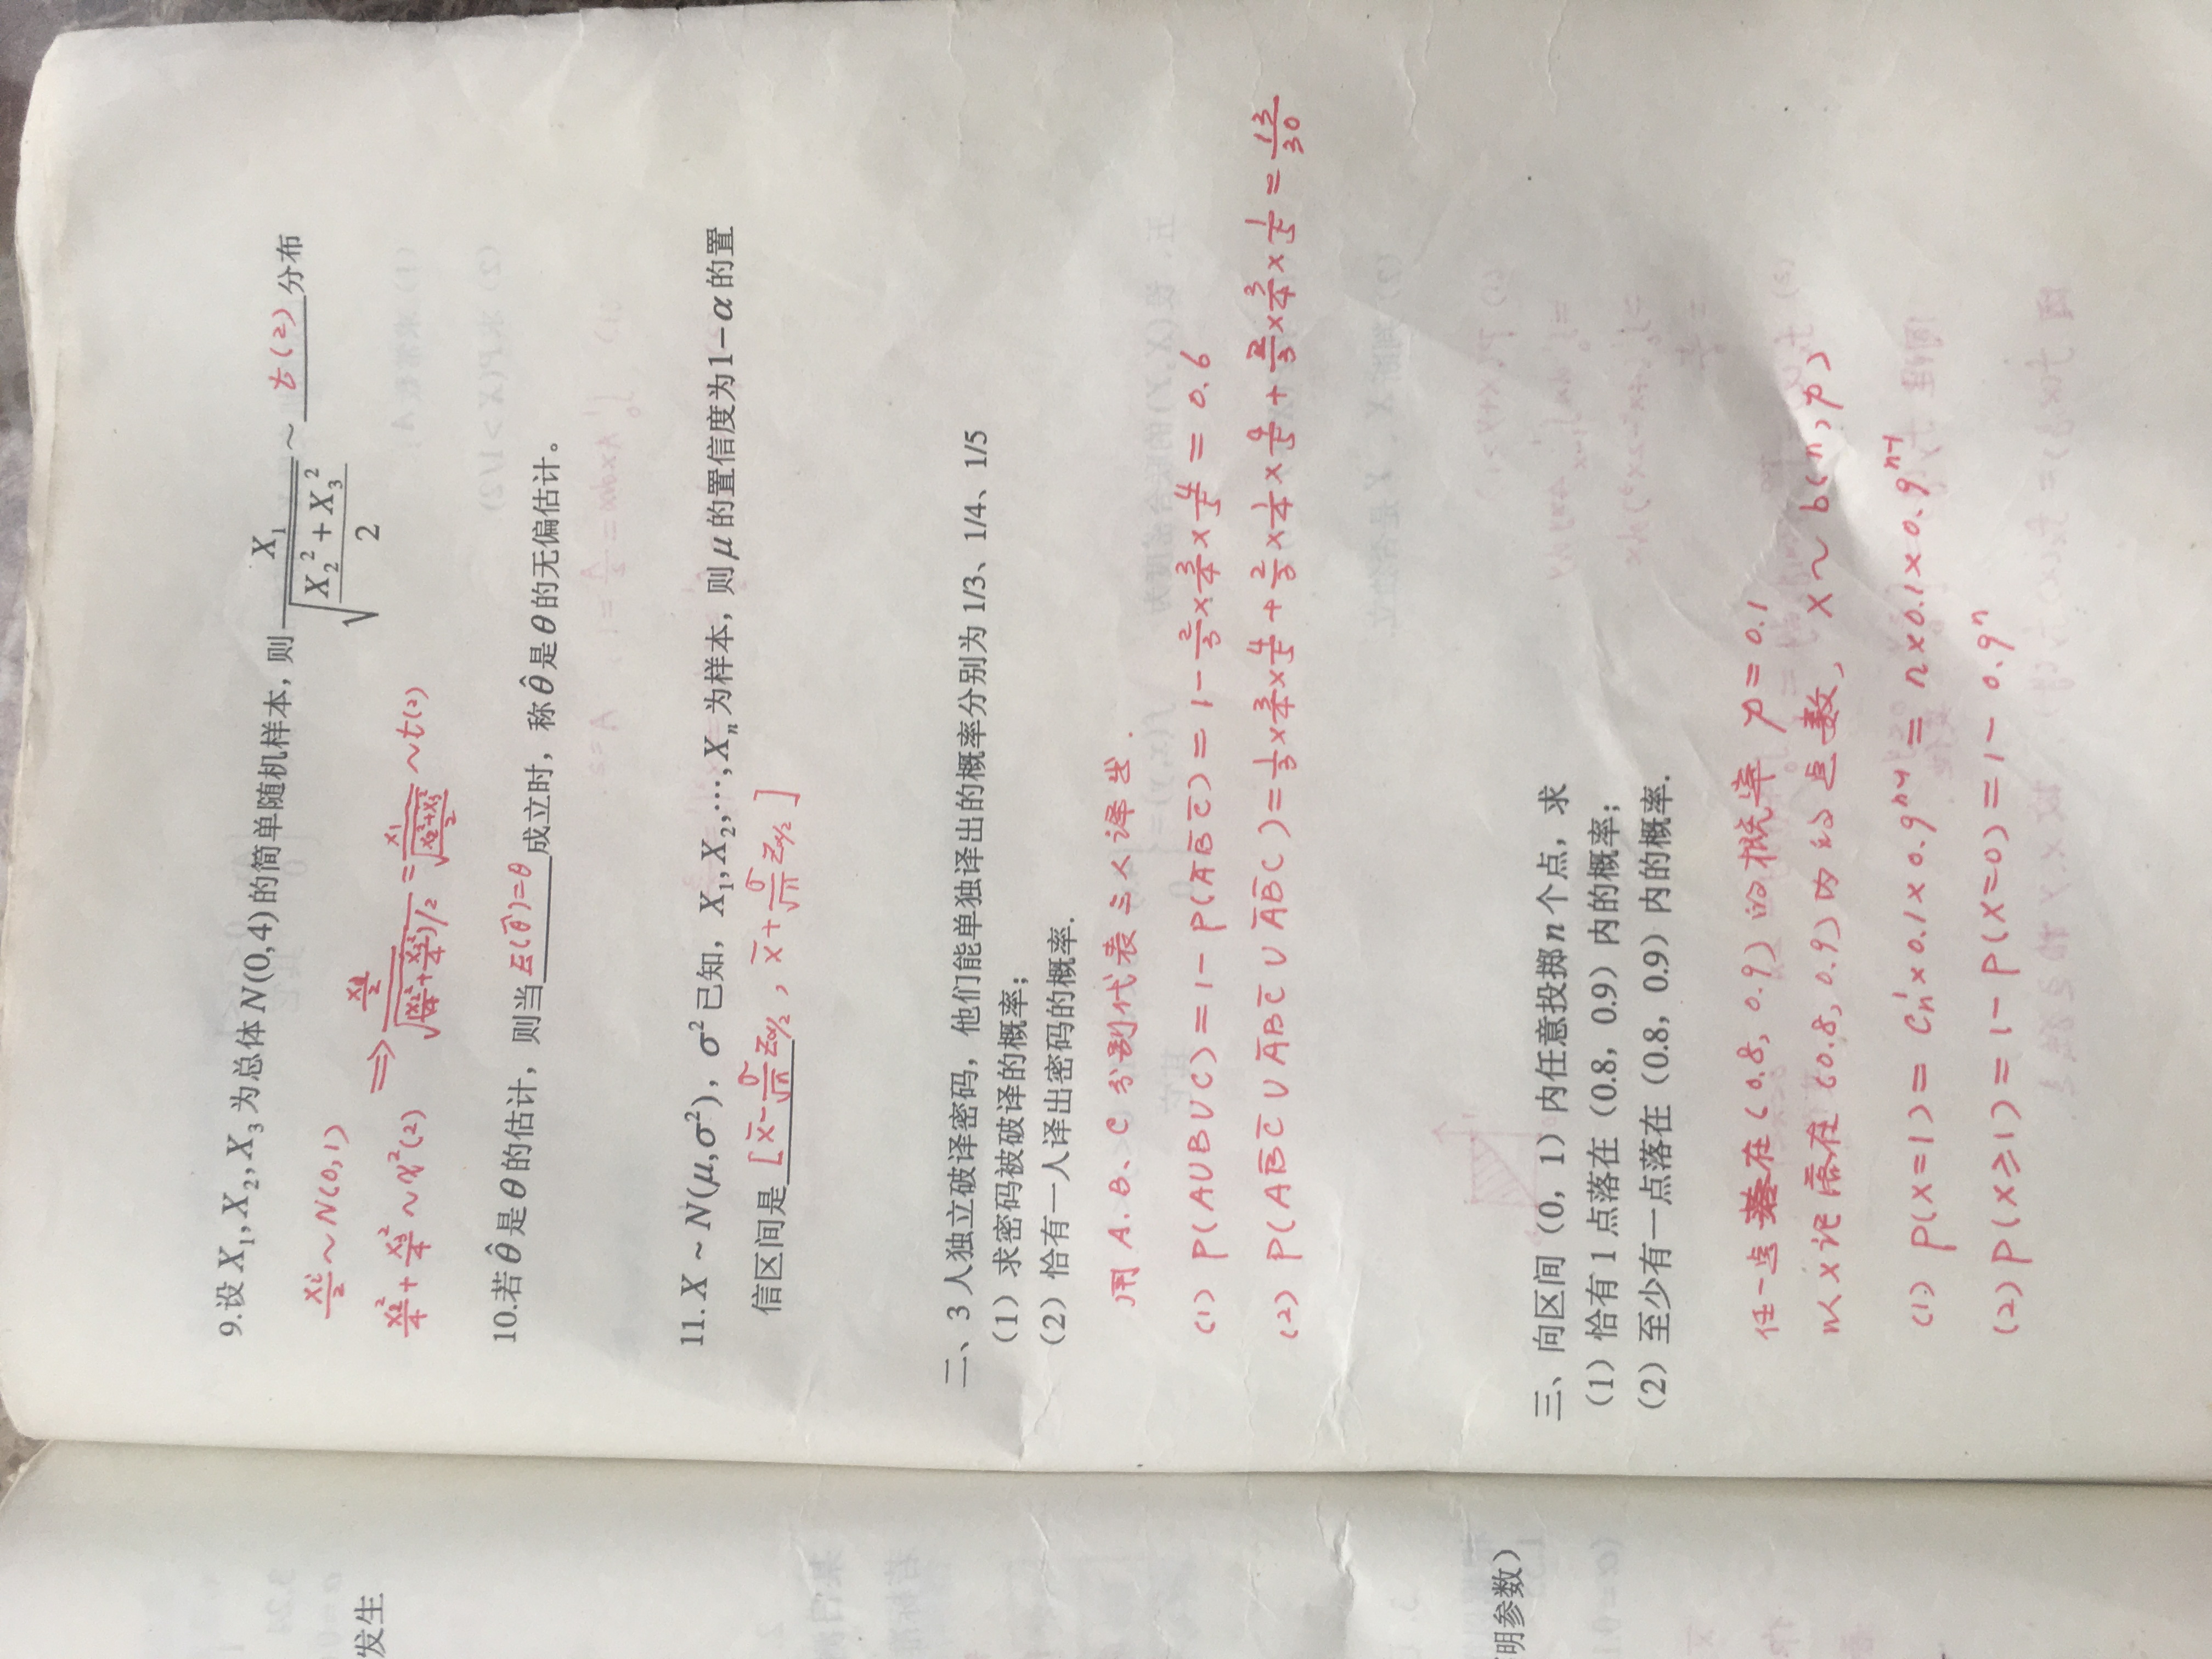 发生
明参数）
9.设 X₁, X₂, X₃ 为总体 N(0, 4) 的简单随机样本，则 X₁ / √((X₂² + X₃²)/2) ~ t(2) 分布
Xi/2 ~ N(0,1)
X₂²/4 + X₃²/4 ~ χ²(2) ⟹ (X₁/2) / √((X₂²/4 + X₃²/4)/2) = X₁ / √((X₂²+X₃²)/2) ~ t(2)
10.若 θ̂ 是 θ 的估计，则当 E(θ̂)=θ 成立时，称 θ̂ 是 θ 的无偏估计。
11. X ~ N(μ, σ²)，σ² 已知，X₁, X₂, ⋯, Xₙ 为样本，则 μ 的置信度为 1−α 的置
信区间是 [x̄ − σ/√n Z_{α/2} , x̄ + σ/√n Z_{α/2}]
二、3 人独立破译密码，他们能单独译出的概率分别为 1/3、1/4、1/5
（1）求密码被破译的概率；
（2）恰有一人译出密码的概率.
用 A、B、C 分别代表三人译出.
(1) P(A∪B∪C) = 1 − P(A̅ B̅ C̅) = 1 − 2/3 × 3/4 × 4/5 = 0.6
(2) P(AB̅C̅ ∪ A̅BC̅ ∪ A̅B̅C) = 1/3 × 3/4 × 4/5 + 2/3 × 1/4 × 4/5 + 2/3 × 3/4 × 1/5 = 13/30
三、向区间（0，1）内任意投掷 n 个点，求
（1）恰有 1 点落在（0.8，0.9）内的概率；
（2）至少有一点落在（0.8，0.9）内的概率.
任一点落在(0.8, 0.9)的概率 p = 0.1
以X记落在(0.8, 0.9)内的点数, X ~ b(n, p)
(1) P(X=1) = Cₙ¹ × 0.1 × 0.9ⁿ⁻¹ = n × 0.1 × 0.9ⁿ⁻¹
(2) P(X≥1) = 1 − P(X=0) = 1 − 0.9ⁿ